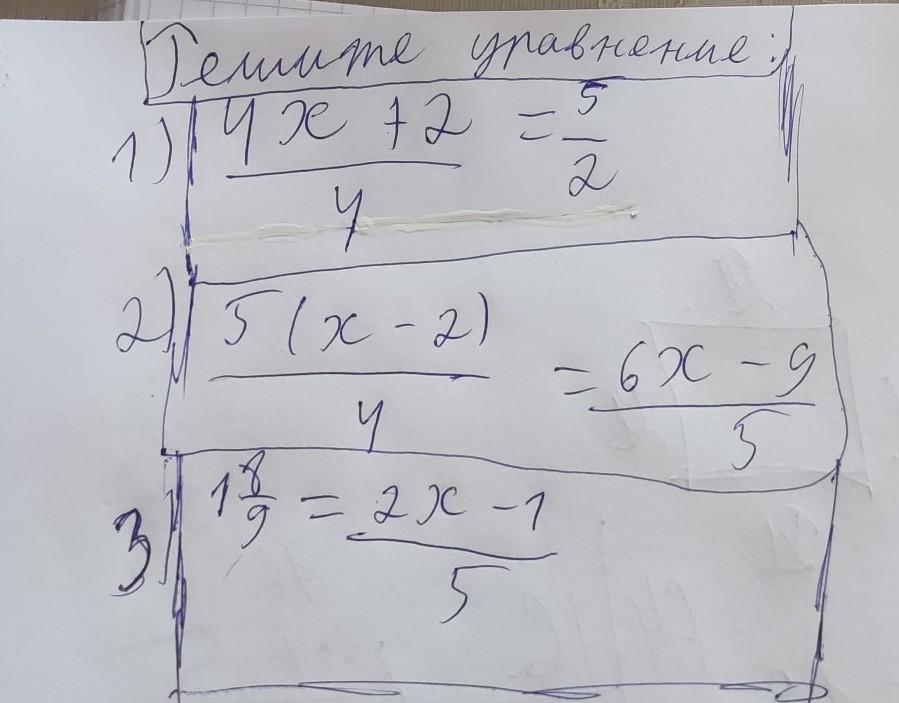 Решите уравнение:
1) (4x + 2)/4 = 5/2
2) 5(x - 2)/4 = (6x - 9)/5
3) 1 8/9 = (2x - 1)/5